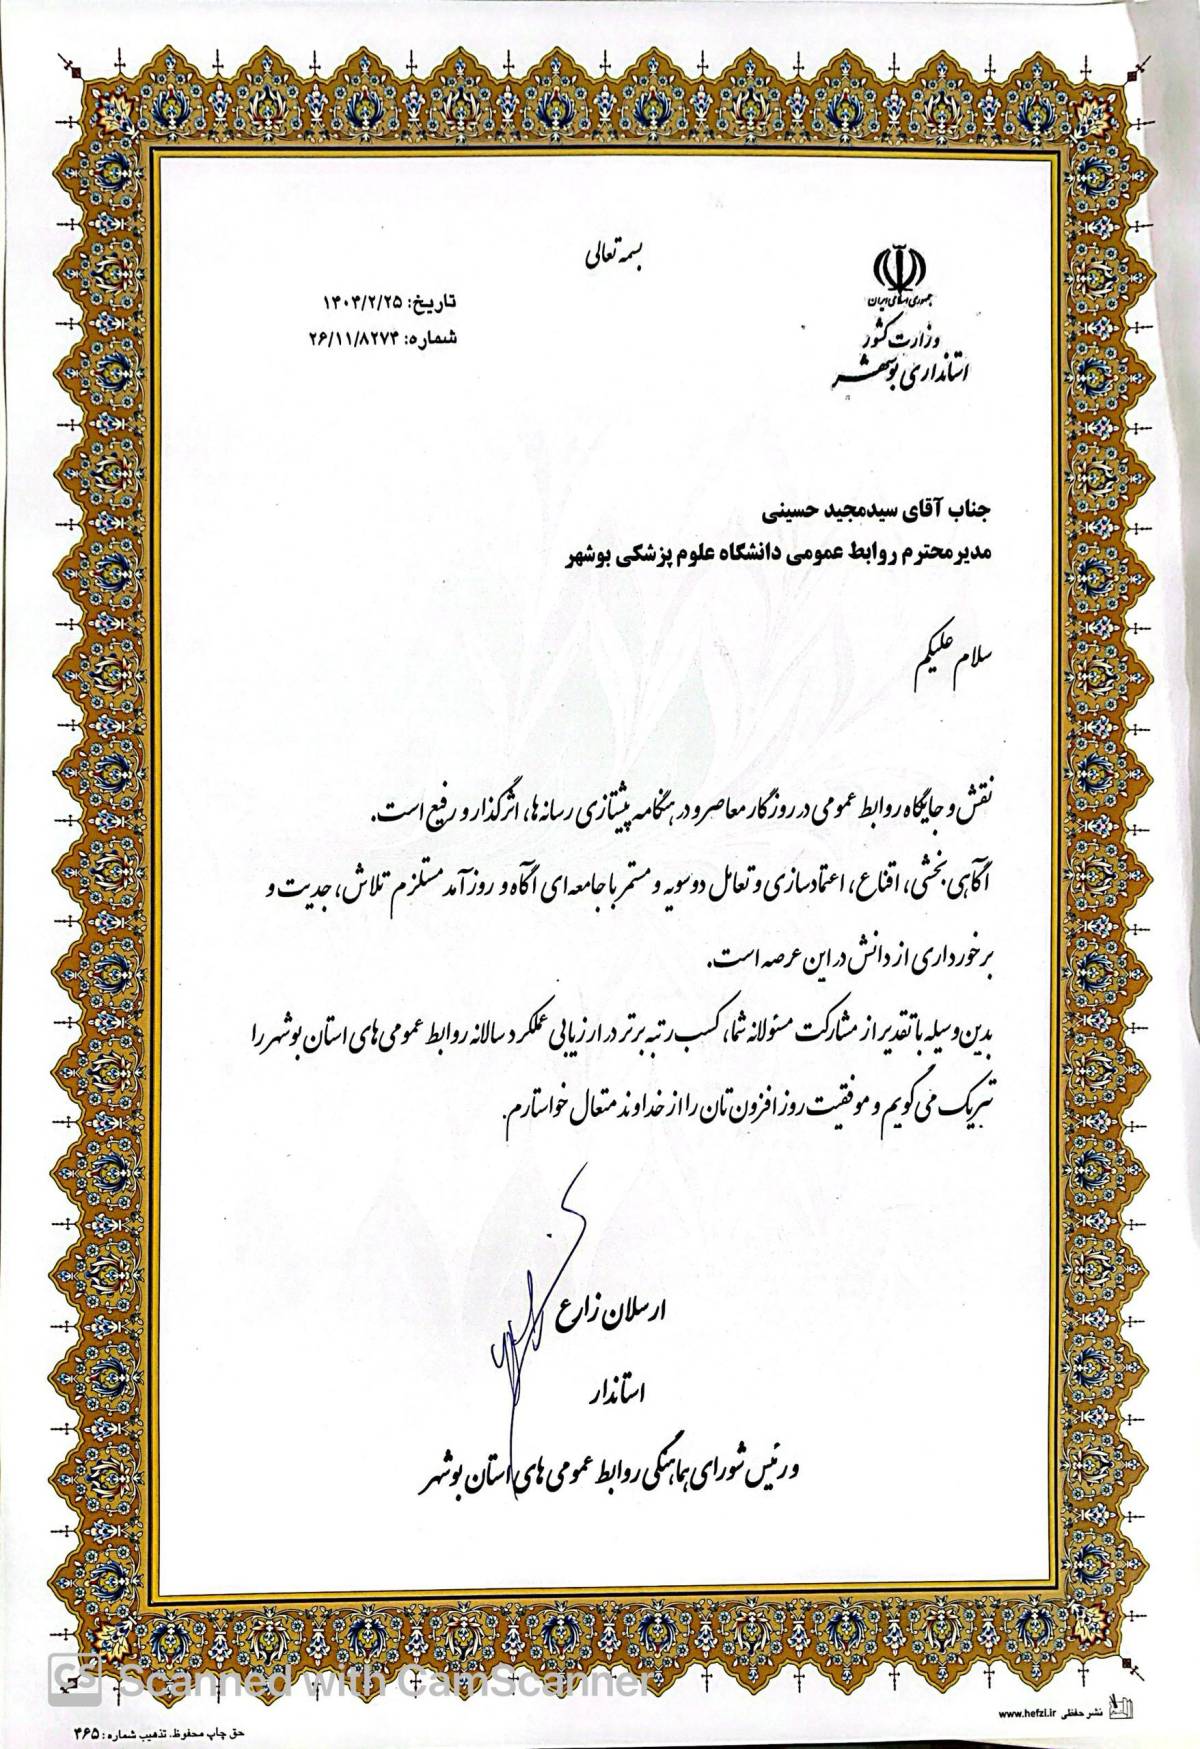 بسمه تعالی
جمهوری اسلامی ایران
وزارت کشور
استانداری بوشهر
تاریخ: ۱۴۰۴/۲/۲۵
شماره: ۲۶/۱۱/۸۲۷۴
جناب آقای سیدمجید حسینی
مدیرمحترم روابط عمومی دانشگاه علوم پزشکی بوشهر
سلام علیکم
نقش و جایگاه روابط عمومی در روزگار معاصر و در هنگامه پیشتازی رسانه ها، اثرگذار و رفیع است.
آگاهی بخشی، اقناع، اعتمادسازی و تعامل دوسویه و مستمر با جامعه ای آگاه و روزآمد مستلزم تلاش، جدیت و
برخورداری از دانش در این عرصه است.
بدین وسیله با تقدیر از مشارکت مسئولانه شما، کسب رتبه برتر در ارزیابی عملکرد سالانه روابط عمومی های استان بوشهر را
تبریک می گویم و موفقیت روزافزون تان را از خداوند متعال خواستارم.
ارسلان زارع
استاندار
و رئیس شورای هماهنگی روابط عمومی های استان بوشهر
CS Scanned with CamScanner
نشر حفظی www.hefzi.ir
حق چاپ محفوظ. تذهیب شماره: ۴۶۵